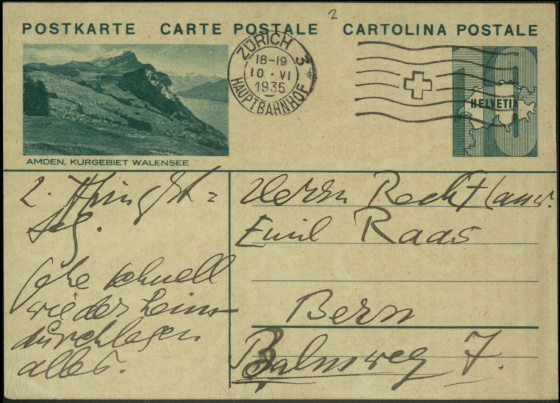 2
POSTKARTE CARTE POSTALE CARTOLINA POSTALE
ZÜRICH 3
18-19
10·VI
1935
HAUPTBAHNHOF
HELVETIA
10
AMDEN, KURGEBIET WALENSEE
2. Pfingst=
Herrn Rechtsanw.
Emil Raas
Bern
Balmweg 7.
schnell
wieder heim
alles.